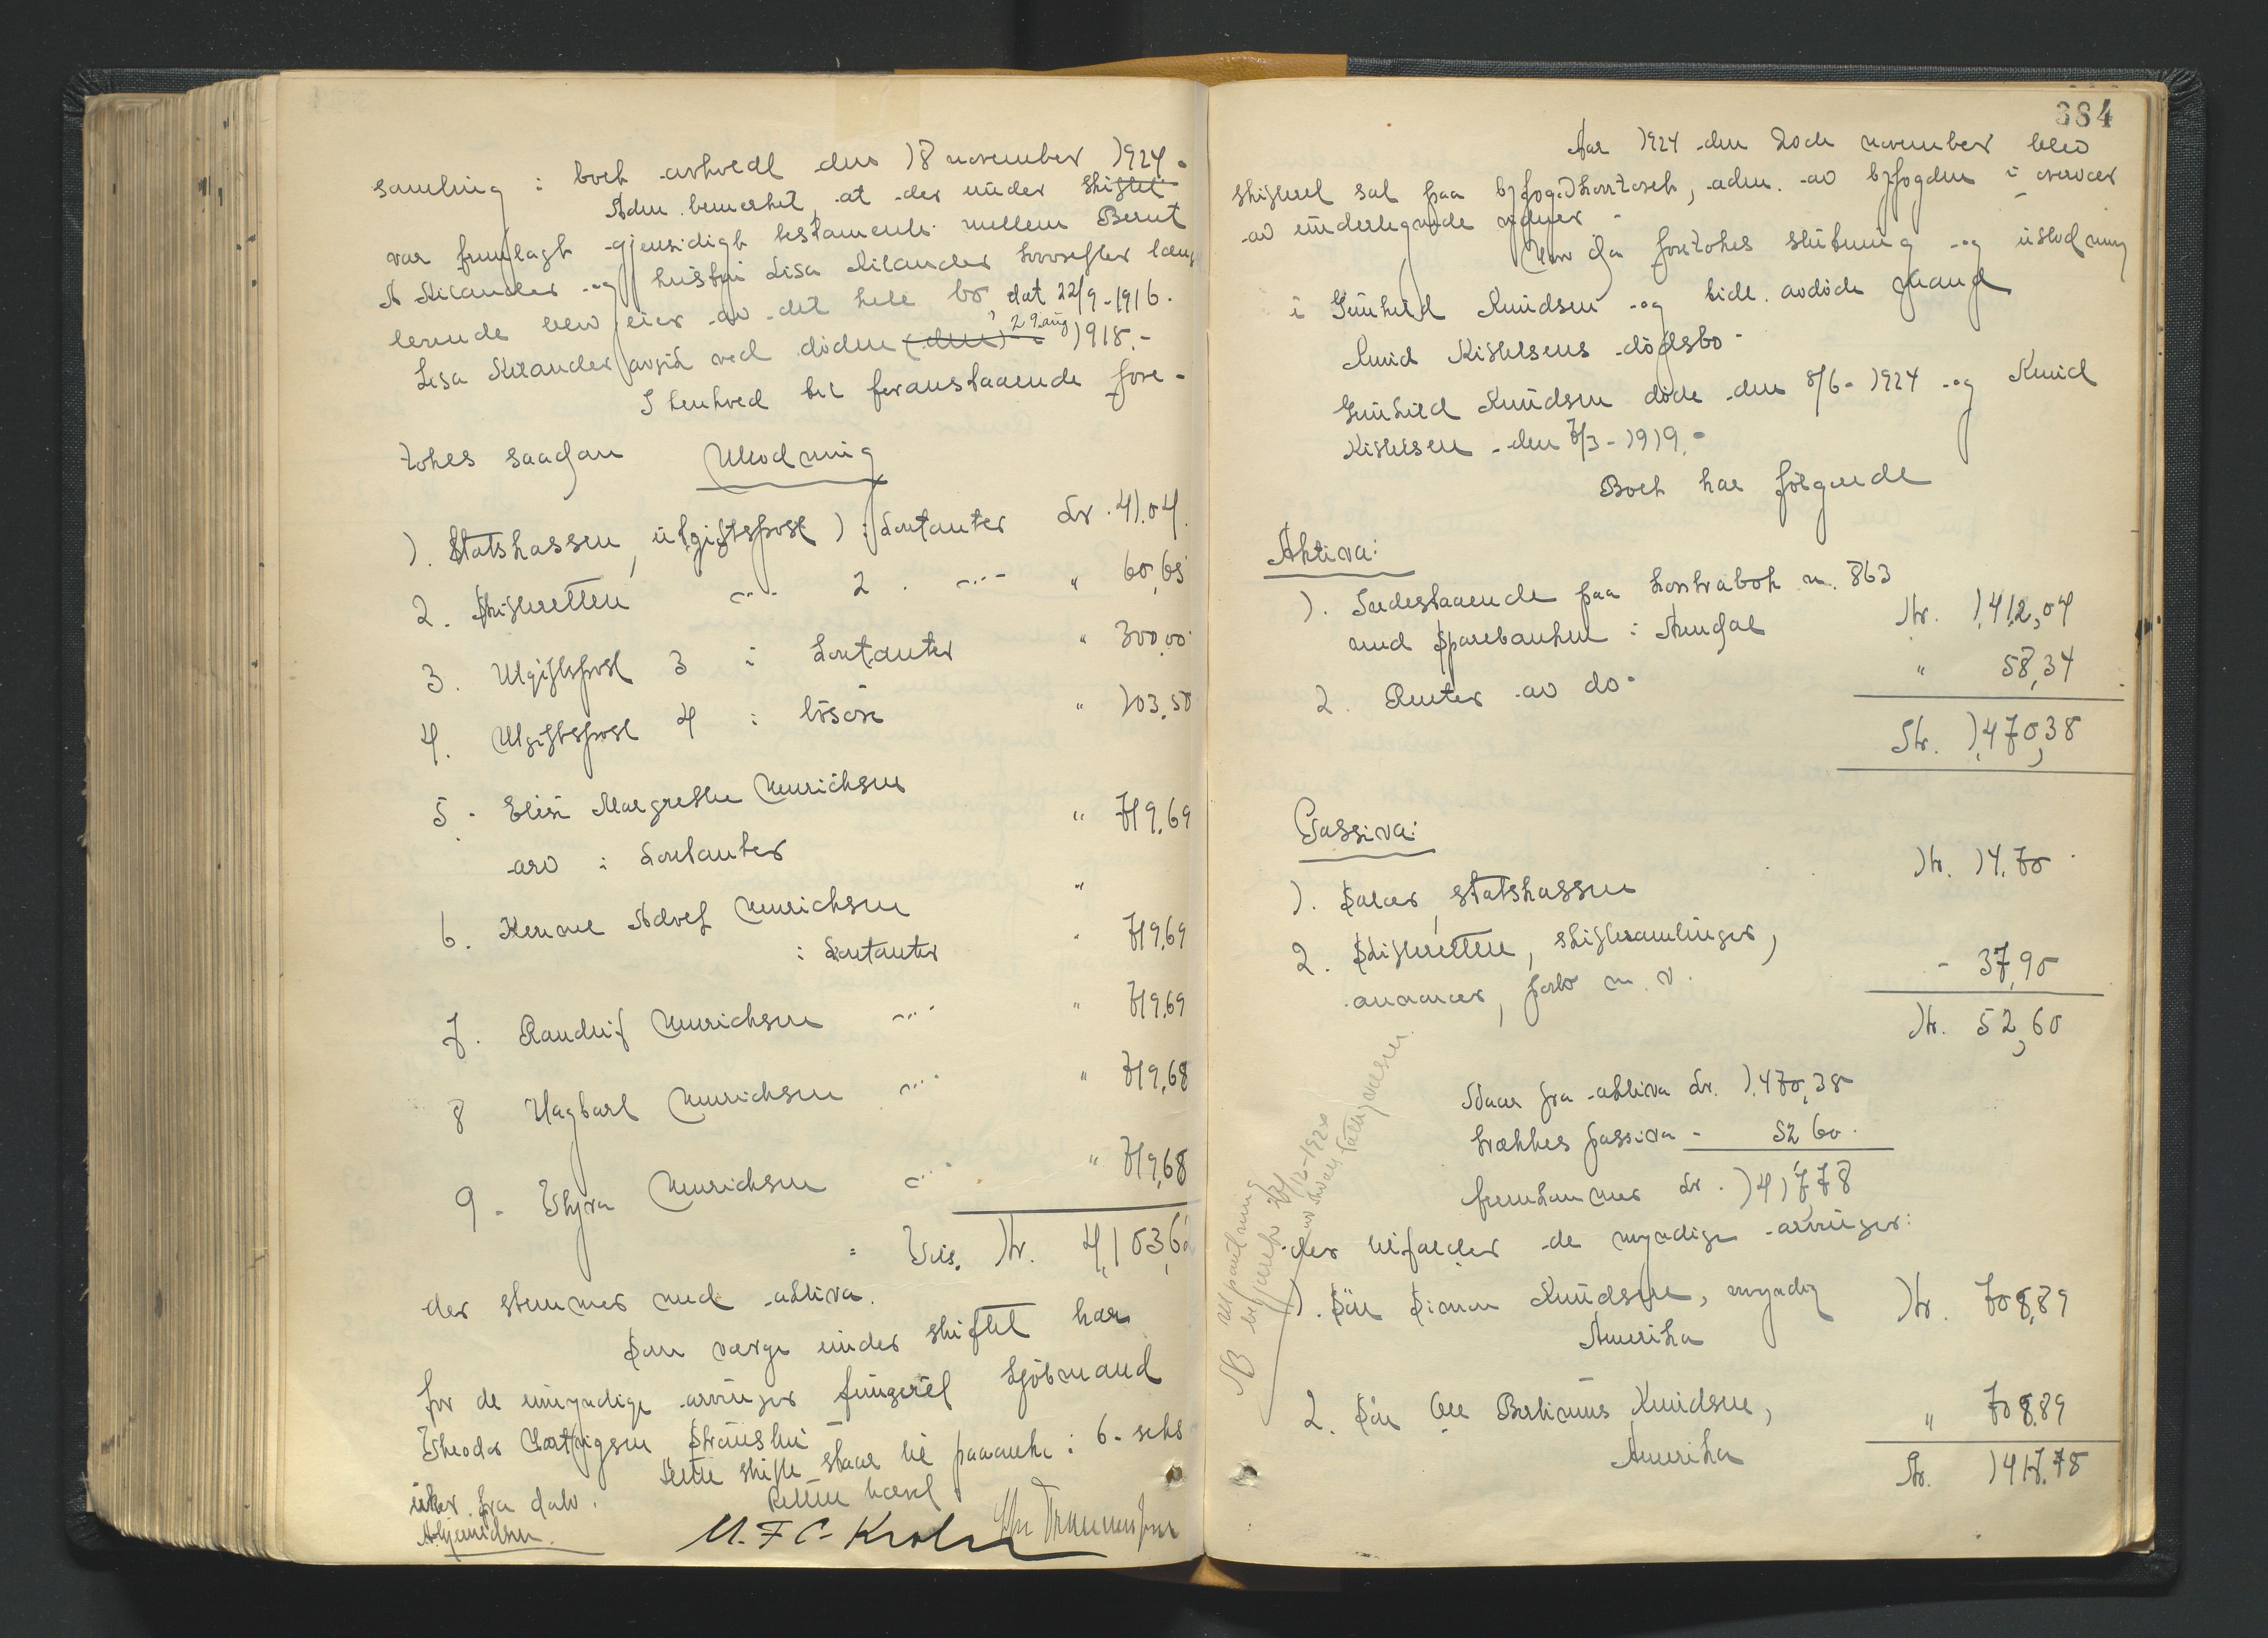 samling i boet avholdt den 18 november 1924.
Adm. bemerket, at der under skiftet
var fremlagt gjensidigt testamente mellem Bernt
A Kilander og hustru Lisa Kilander hvorefter læng
levende blev eier av det hele bo, dat 22/9-1916.
Lisa Kilander avgik ved døden (den) 29 aug 1918.-
I henhold til foranstaaende fore-
tokes saadan Utlodning
1. Statskassen, utgiftspost 1 i kontanter Kr. 41.04.
2. Skifteretten -"- 2. -"- " 60,65
3. Utgiftspost 3 i kontanter " 300,00
4. Utgiftspost 4 i løsøre " 103,50
5. Elise Margrethe Henrichsen
arv i kontanter " 719,69
6. Adolf Henrichsen "
i kontanter " 719,69
7. Randulf Henrichsen -"- " 719,69
8 Hagbart Henrichsen -"- " 719,68
9. Thyra Henrichsen -"- " 719,68
= Tils. Kr. 4,103,62
der stemmer med aktiva.
Som verge under skiftet har
for de umyndige arvinger fungeret sjømand
Theodor
Dette skifte staar til paaanke i 6- seks
uker fra dato.
Retten hævet
M. F C- Krohn
384
Aar 1924 den 20de november blev
skifteret sat paa byfogdkontoret, adm. av byfogden i overvær
av underlegnede vidner
Hvor da foretokes slutning og utlodning
i Gunhild Knudsen og tidl. avdøde mand
Knud Kittelsens dødsbo-
Gunhild Knudsen døde den 8/6-1924 og Knud
Kittelsen den 7/3-1919.-
Boet har følgende
Aktiva:
1. Indestaaende paa kontrabok n. 863
med Sparebanken i Arendal Kr. 1,412,04
2. Renter av do- " 58,34
Kr. 1,470,38
Passiva:
1. Salær, statskassen Kr. 14.70
2. Skifteretten, skiftesamlinger,
annoncer, porto m. v. - 37,90
Kr. 52,60
Naar fra aktiva Kr. 1.470,38
trækkes passiva - 52 60.
fremkommer Kr. 1417,78
der tilfalder de myndige arvinger:
1. Søn Simon Knudsen, myndig Kr. 708,89
Amerika
2. Søn Ole Bertinius Knudsen, " 708.89
Amerika
Kr. 1417.78
NB utpantning